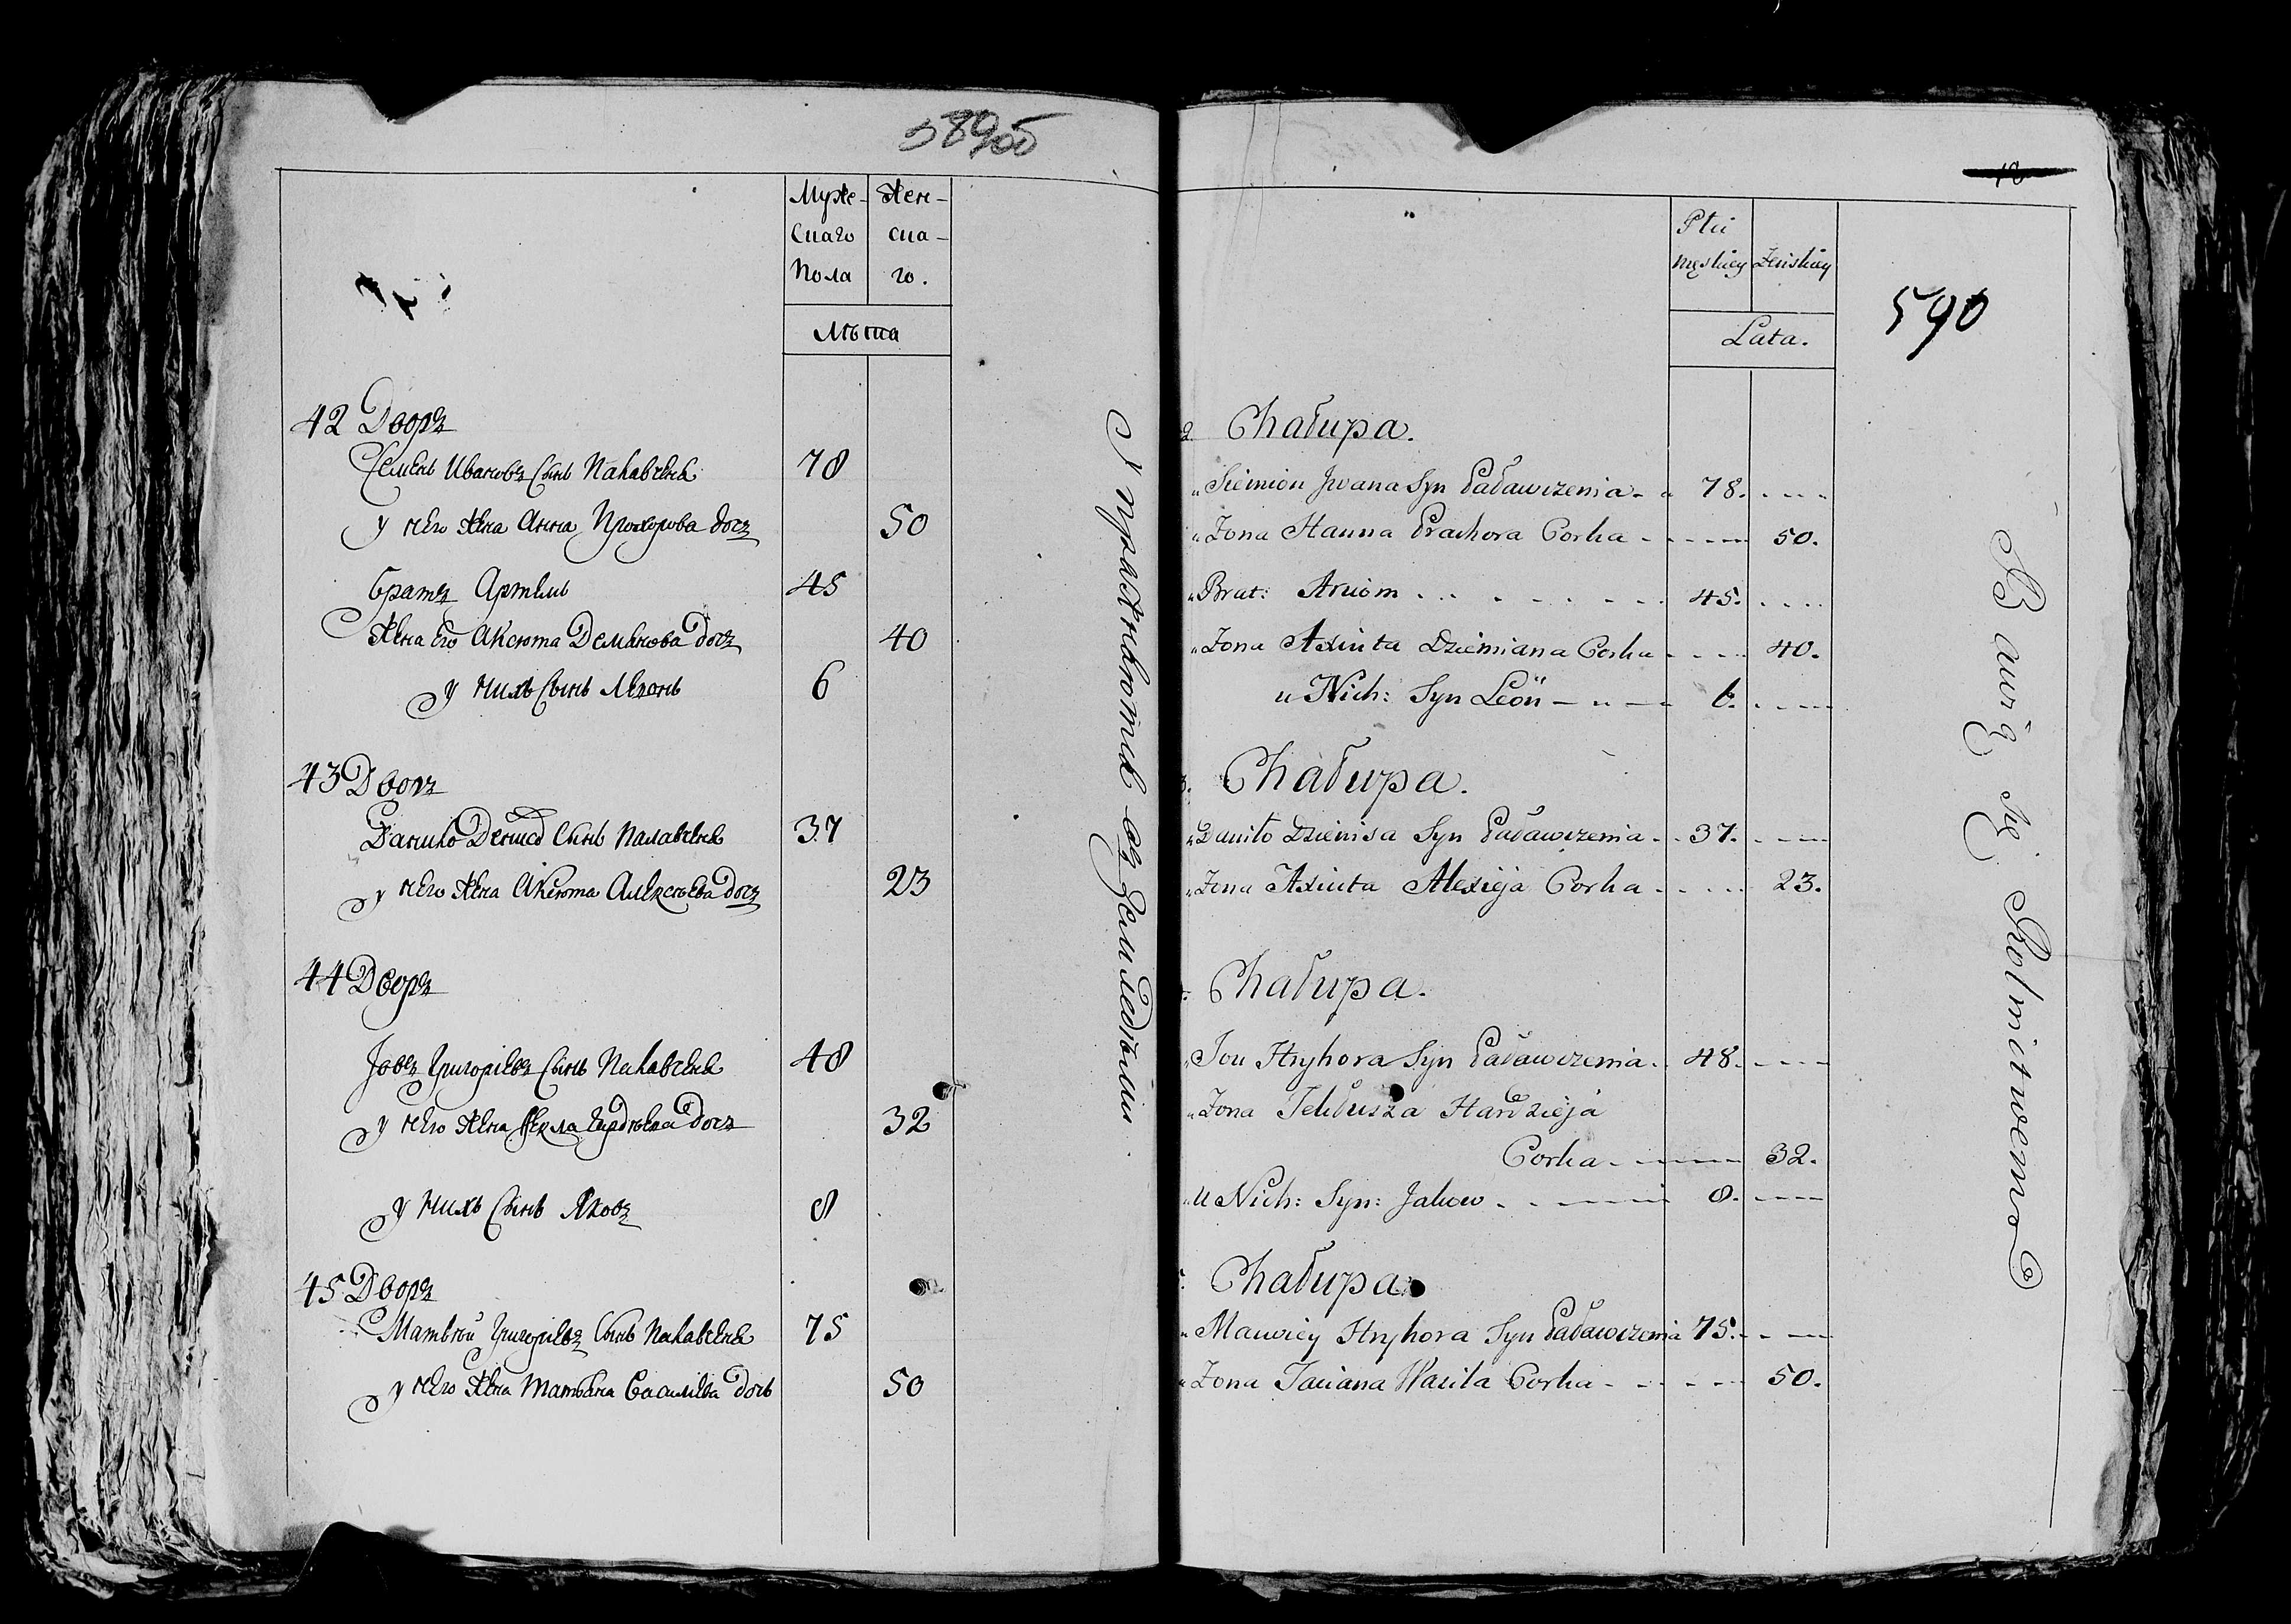 Муже-
скаго
пола
Жен-
ска-
го.
Лѣта
42 Дворъ
Семенъ Ивановъ сынъ 78
у него жена Анна Прохорова дочь 50
братъ Артемъ 45
жена его Аксюта Демянова дочь 40
у нихъ сынъ Леонъ 6
43 Дворъ
Данило Денисов сынъ 37
у него жена Аксюта Алексѣева дочь 23
44 Дворъ
Іовъ Григорьевъ сынъ 48
у него жена Гордѣева дочь 32
у нихъ сынъ Яковъ 8
45 Дворъ
Матвѣй Григорьевъ сынъ 75
у него жена Татьяна Васильева дочь 50
Упражняются въ земледѣлии
Płci
męskiey
Żeńskiey
Lata.
590
Chałupa.
Siemion Jwana Syn Paławczenia 78.
Żona Hanna Prachora Corka 50.
Brat: Arciom 45.
Żona Axiuta Dziemiana Corka 40.
u Nich: Syn Leon 6.
Chałupa.
Daniło Dzienisa Syn Paławczenia 37.
Żona Axiuta Alexieja Corka 23.
Chałupa.
Jou Hryhora Syn Paławczenia 48.
Żona Hardzieja
Corka 32.
u Nich: Syn: Jakow 8.
Chałupa
Mauwiey Hryhora Syn Paławczenia 75.
Żona Taciana Wasila Corka 50.
Bawią się Rolnictwem